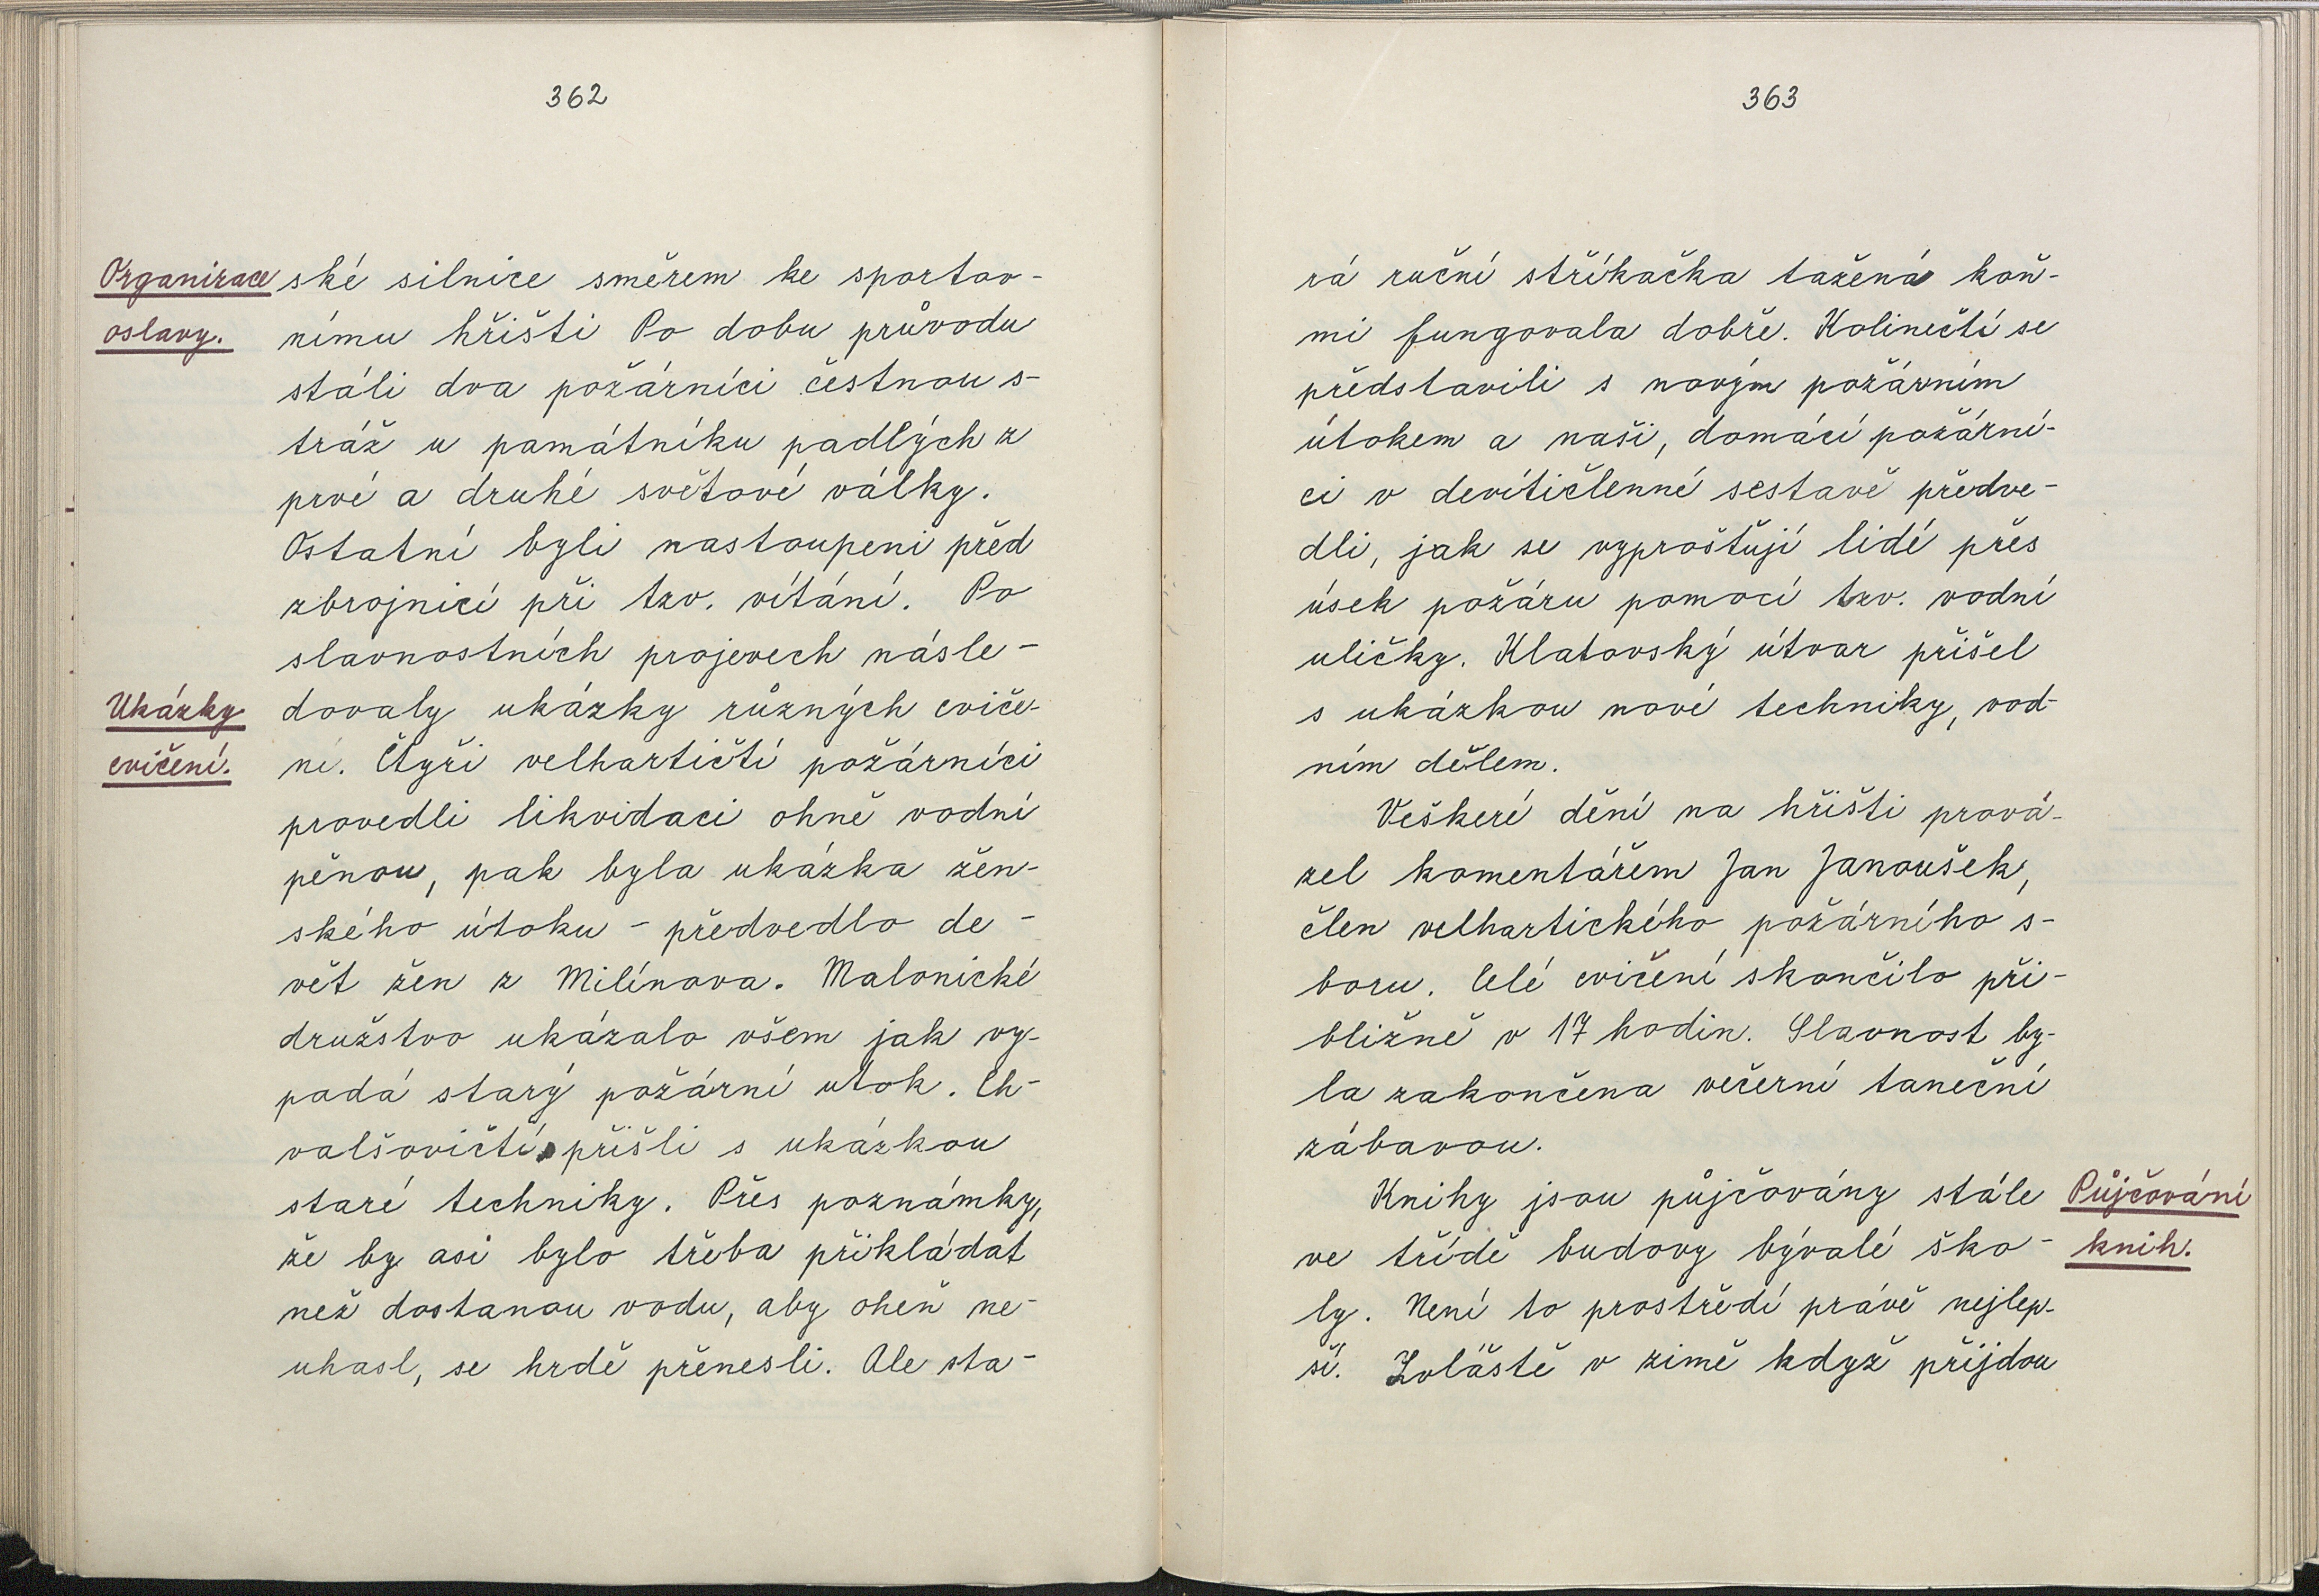 362
Organizace
oslavy.
ské silnice směrem ke sportov-
nímu hřišti Po dobu průvodu
stáli dva požárníci čestnou s-
tráž u památníku padlých z
prvé a druhé světové války.
Ostatní byli nastoupeni před
zbrojnicí při tzv. vítání. Po
slavnostních projevech násle-
Ukázky
cvičení.
dovaly ukázky různých cviče-
ní. Čtyři velhartičtí požárníci
provedli likvidaci ohně vodní
pěnou, pak byla ukázka žen-
ského útoku - předvedlo de-
vět žen z Milínova. Malonické
družstvo ukázalo všem jak vy-
padá starý požární utok. Ch-
valšovičtí přišli s ukázkou
staré techniky. Přes poznámky,
že by asi bylo třeba přikládat
než dostanou vodu, aby oheň ne-
uhasl, se hrdě přenesli. Ale sta-
363
rá ruční stříkačka tažená koň-
mi fungovala dobře. Kolinečtí se
představili s novým požárním
útokem a naši, domácí požární-
ci v devítičlenné sestavě předve-
dli, jak se vyprošťují lidé přes
úsek požáru pomocí tzv. vodní
uličky. Klatovský útvar přišel
s ukázkou nové techniky, vod-
ním dělem.
Veškeré dění na hřišti prová-
zel komentářem Jan Janoušek,
člen velhartického požárního s-
boru. Celé cvičení skončilo při-
bližně v 17 hodin. Slavnost by-
la zakončena večerní taneční
zábavou.
Knihy jsou půjčovány stále
ve třídě budovy bývalé ško-
ly. Není to prostředí právě nejlep-
ší. Zvláště v zimě když přijdou
Půjčování
knih.